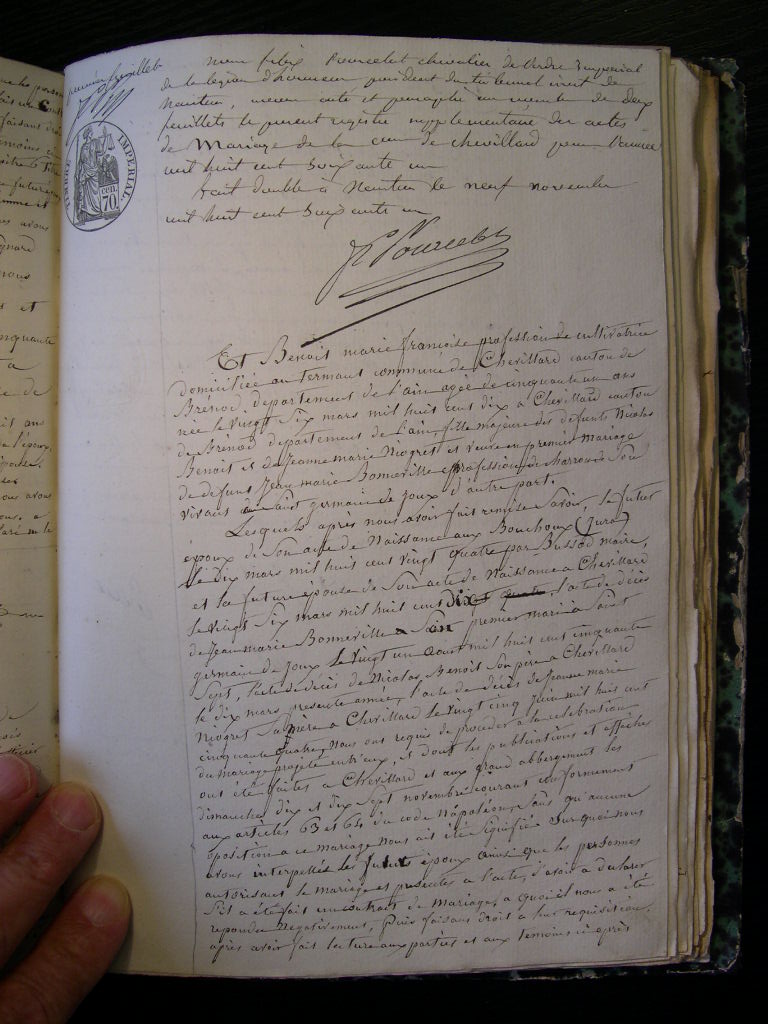 premier feuillet
TIMBRE IMPERIAL
CEN. 70
nous felix Pourcelet chevalier de l'ordre Imperial
de la legion d'honneur president du tribunal civil de
Nantua, avons coté et paraphé au nombre de deux
feuillets le present registre supplementaire des actes
de Mariage de la cne de chevillard pour l'année
mil huit cent soixante un
fait double à Nantua le neuf novembre
mil huit cent soixante un
F Pourcelet
Et Benoit marie françoise profession de cultivatrice
domiciliée au termant commune de Chevillard canton de
Brénod, departement de l'ain agée de cinquante un ans
née le vingt Six mars mil huit cent dix a Chevillard canton
de Brénod departement de l'ain, fille majeure des defunts Nicolas
Benoit et de Jeanne marie Niogret et veuve en premier mariage
de defunt Jean marie Bonneville profession de charron de Son
vivant a Saint germain de Joux d'autre part.
Lesquels apres nous avoir fait remise Savoir, le futur
époux de Son acte de Naissance aux Bouchoux (Jura)
le dix mars mil huit cent vingt quatre par Bussod maire,
et la future épouse de Son acte de Naissance a Chevillard
le vingt Six mars mil huit cent Dix l'acte de décès
de Jean marie Bonneville Son premier mari a Saint
germain de Joux le vingt un aout mil huit cent cinquante
Sept, l'acte de décès de Nicolas Benoit Son père a Chevillard
le dix mars presente année, l'acte de décès de Jeanne marie
Niogret Sa mère a Chevillard le vingt cinq Juin mil huit cent
cinquante quatre, Nous ont requis de proceder a la celebration
du mariage projeté entr'eux, et dont les publications et affiches
ont été faites a Chevillard et aux grand abbergement les
dimanches dix et dix Sept novembre courant conformement
aux articles 63 et 64 du code Napoléon, Sans qu'aucune
oposition a ce mariage nous ait été Signifiée Sur quoi nous
avons interpellés les futurs époux ainsi que les personnes
autorisant le mariage et presentes a l'acte, d'avoir a declarer
S'il a été fait un contrat de Mariage, a quoi il nous a été
repondu Negativement, Puis faisant droit a leur requisition.
après avoir fait lecture aux parties et aux temoins ci après